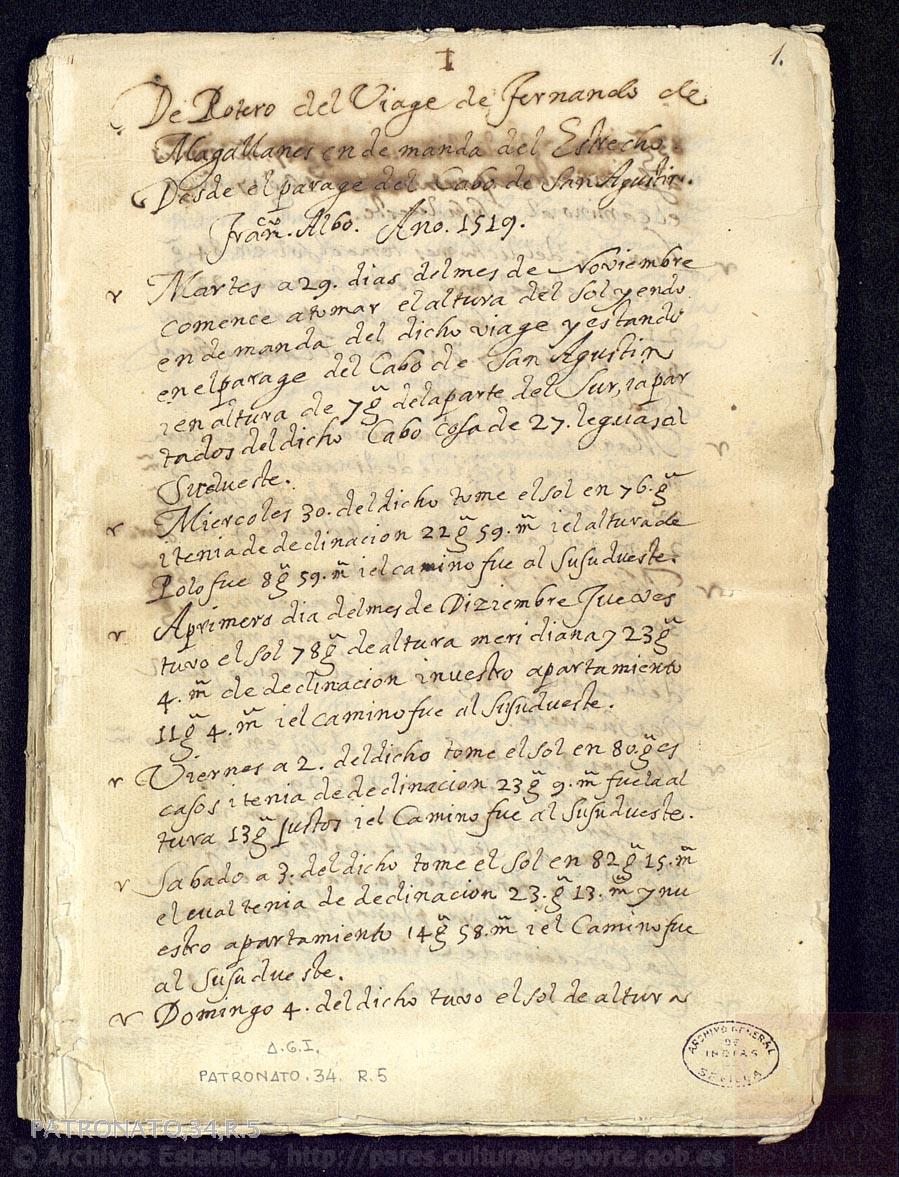 1.
De Rotero del Viage de Fernando de
Magallanes en de manda del Estrecho.
Desde el parage del Cabo de San Agustin.
Franco. Albo. Ano. 1519.
Martes a 29. dias del mes de Noviembre
comence a tomar el altura del Sol yendo
en demanda del dicho viage y estando
en el parage del Cabo de San Agustin
i en altura de 7 gs de la parte del Sur, i apar
tados del dicho Cabo cosa de 27. leguas al
Sudueste.
Miercoles 30. del dicho tome el sol en 76. gs
i tenia de declinacion 22 gs 59. ms i el altura de
Polo fue 8 gs 59. ms i el camino fue al Susudueste.
A primero dia del mes de Diziembre Jueves
tuvo el Sol 78 gs de altura meridiana y 23 gs
4. ms de declinacion i nuestro apartamiento
11 gs 4. ms i el camino fue al Susudueste.
Viernes a 2. del dicho tome el sol en 80. gs es
casos i tenia de declinacion 23 gs 9. ms fue la al
tura 13 gs justos i el Camino fue al Susudueste.
Sabado a 3. del dicho tome el Sol en 82 gs 15. ms
el cual tenia de declinacion 23. gs 13. ms y nu
estro apartamiento 14 gs 58. ms i el Camino fue
al Susudueste.
Domingo 4. del dicho tuvo el sol de altura
A.G.I.
PATRONATO. 34. R. 5
ARCHIVO GENERAL
DE
INDIAS
SEVILLA
PATRONATO,34,R.5
© Archivos Estatales, http://pares.culturaydeporte.gob.es